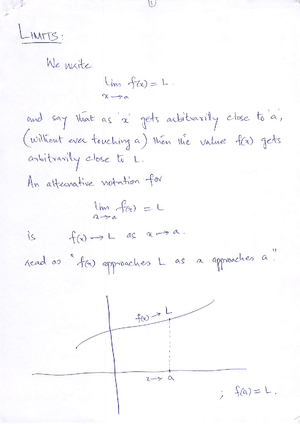 1
LIMITS:
We write
lim f(x) = L.
x→a
and say that as 'x' gets arbitrarily close to 'a',
(without ever touching a) then the value f(x) gets
arbitrarily close to L.
An alternative notation for
lim f(x) = L
x→a
is f(x) → L as x → a.
read as "f(x) approaches L as x approaches a."
f(x) → L
x → a
; f(a) = L.